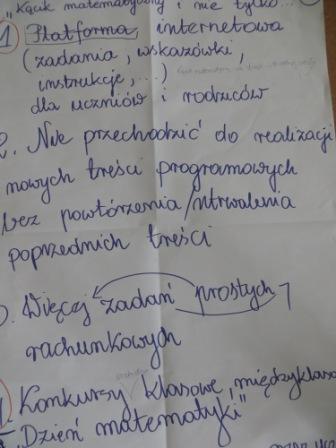 "Kącik matematyczny i nie tylko...
1 Platforma internetowa
(zadania, wskazówki,
instrukcje,...)
dla uczniów i rodziców
2. Nie przechodzić do realizacji
nowych treści programowych
bez powtórzenia/utrwalenia
poprzednich treści
Więcej zadań prostych
rachunkowych
Konkursy klasowe, międzyklaso
"Dzień matematyki"